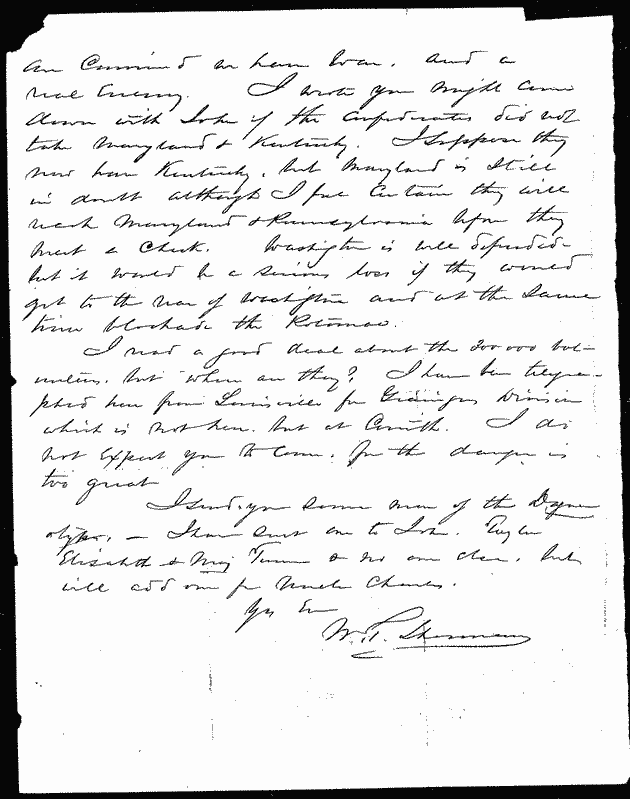 are Convinced we have War. and a
real Enemy. I wrote you might come
down with John if the Confederates did not
take Maryland & Kentucky. I suppose they
now have Kentucky, but Maryland is still
in doubt although I feel Certain they will
reach Maryland & Pennsylvania before they
meet a Check. Washington is well defended-
but it would be a serious loss if they would
get to the rear of Washington and at the same
time blockade the Potomac.
I read a good deal about the 300 000 vol-
unteers, but where are they? I have been telegra-
phed here from Louisville for Division
which is not here. but at Corinth. I do
not Expect you to Come. for the danger is
too great
I send you some more of the Daguerre
otypes, - I have sent one to John.
Elizabeth & Maj Turner & no one else. but
will add one for Uncle Charles.
Yrs Ev
W. T. Sherman